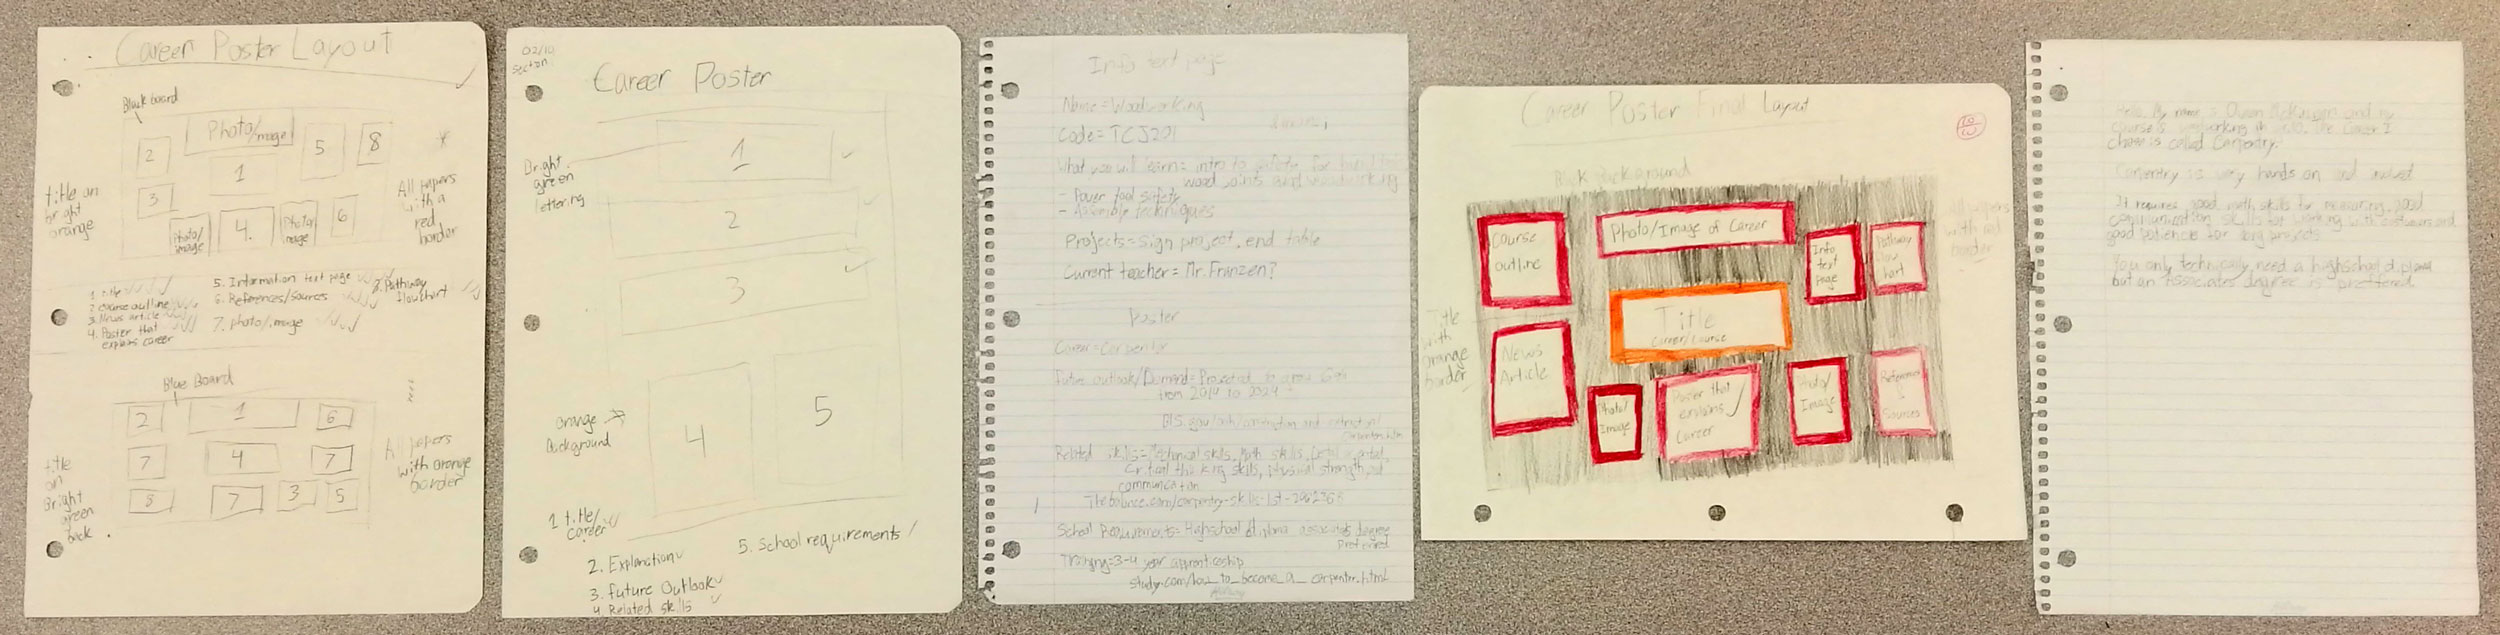 Career Poster Layout
Black board
Photo/image
2
1
5
8
3
title on
bright
orange
All papers
with a
red
border
Photo/
image
4.
Photo
image
6
1. title
2. course outline
3. News article
4. Poster that
explains career
5. Information text page
6. References/Sources
7. photo/image
8. Pathway
flowchart
Blue Board
2
1
6
7
4
7
8
7
3
5
title
on
Bright
green
back.
All papers
with orange
border
02/10
section
Career Poster
Bright
green
lettering
1
2
3
4
5
orange
Background
1 title/
career
2. Explanation
3. Future Outlook
4. Related skills
5. School requirements
Info text page
Name = Woodworking
Code = TCJ201
What you will learn = intro to safety for hand tools
wood joints and woodworking
- Power tool safety
- Assembly techniques
Projects = Sign project, end table
Current teacher = Mr. Franzen?
Poster
Career = Carpenter
Future outlook/Demand = Projected to grow 6%
from 2014 to 2024
Related skills = Mechanical skills, Math skills,
Critical thinking skills, physical strength,
communication
Thebalance.com/carpentry-skills-list-2062368
School Requirements = Highschool diploma associates degree
preferred
Training = 3-4 year apprenticeship
study.com/how_to_become_a_carpenter.html
Career Poster Final Layout
10/10
Black Background
Course
outline
Photo/Image of Career
Info
text
page
Pathway
flow
chart
All papers
with red
border
Title
with
orange
border
Title
career/course
News
Article
Photo/
Image
Poster that
explains
Career
Photo/
Image
References
Sources
Hello. My name is Owen and my
course is woodworking. The Career I
chose is called Carpentry.
Carpentry is very hands on and
It requires good math skills for measuring, good
communication skills for working with customers and
good patience for long projects
You only technically need a highschool diploma
but an Associates degree is preferred.